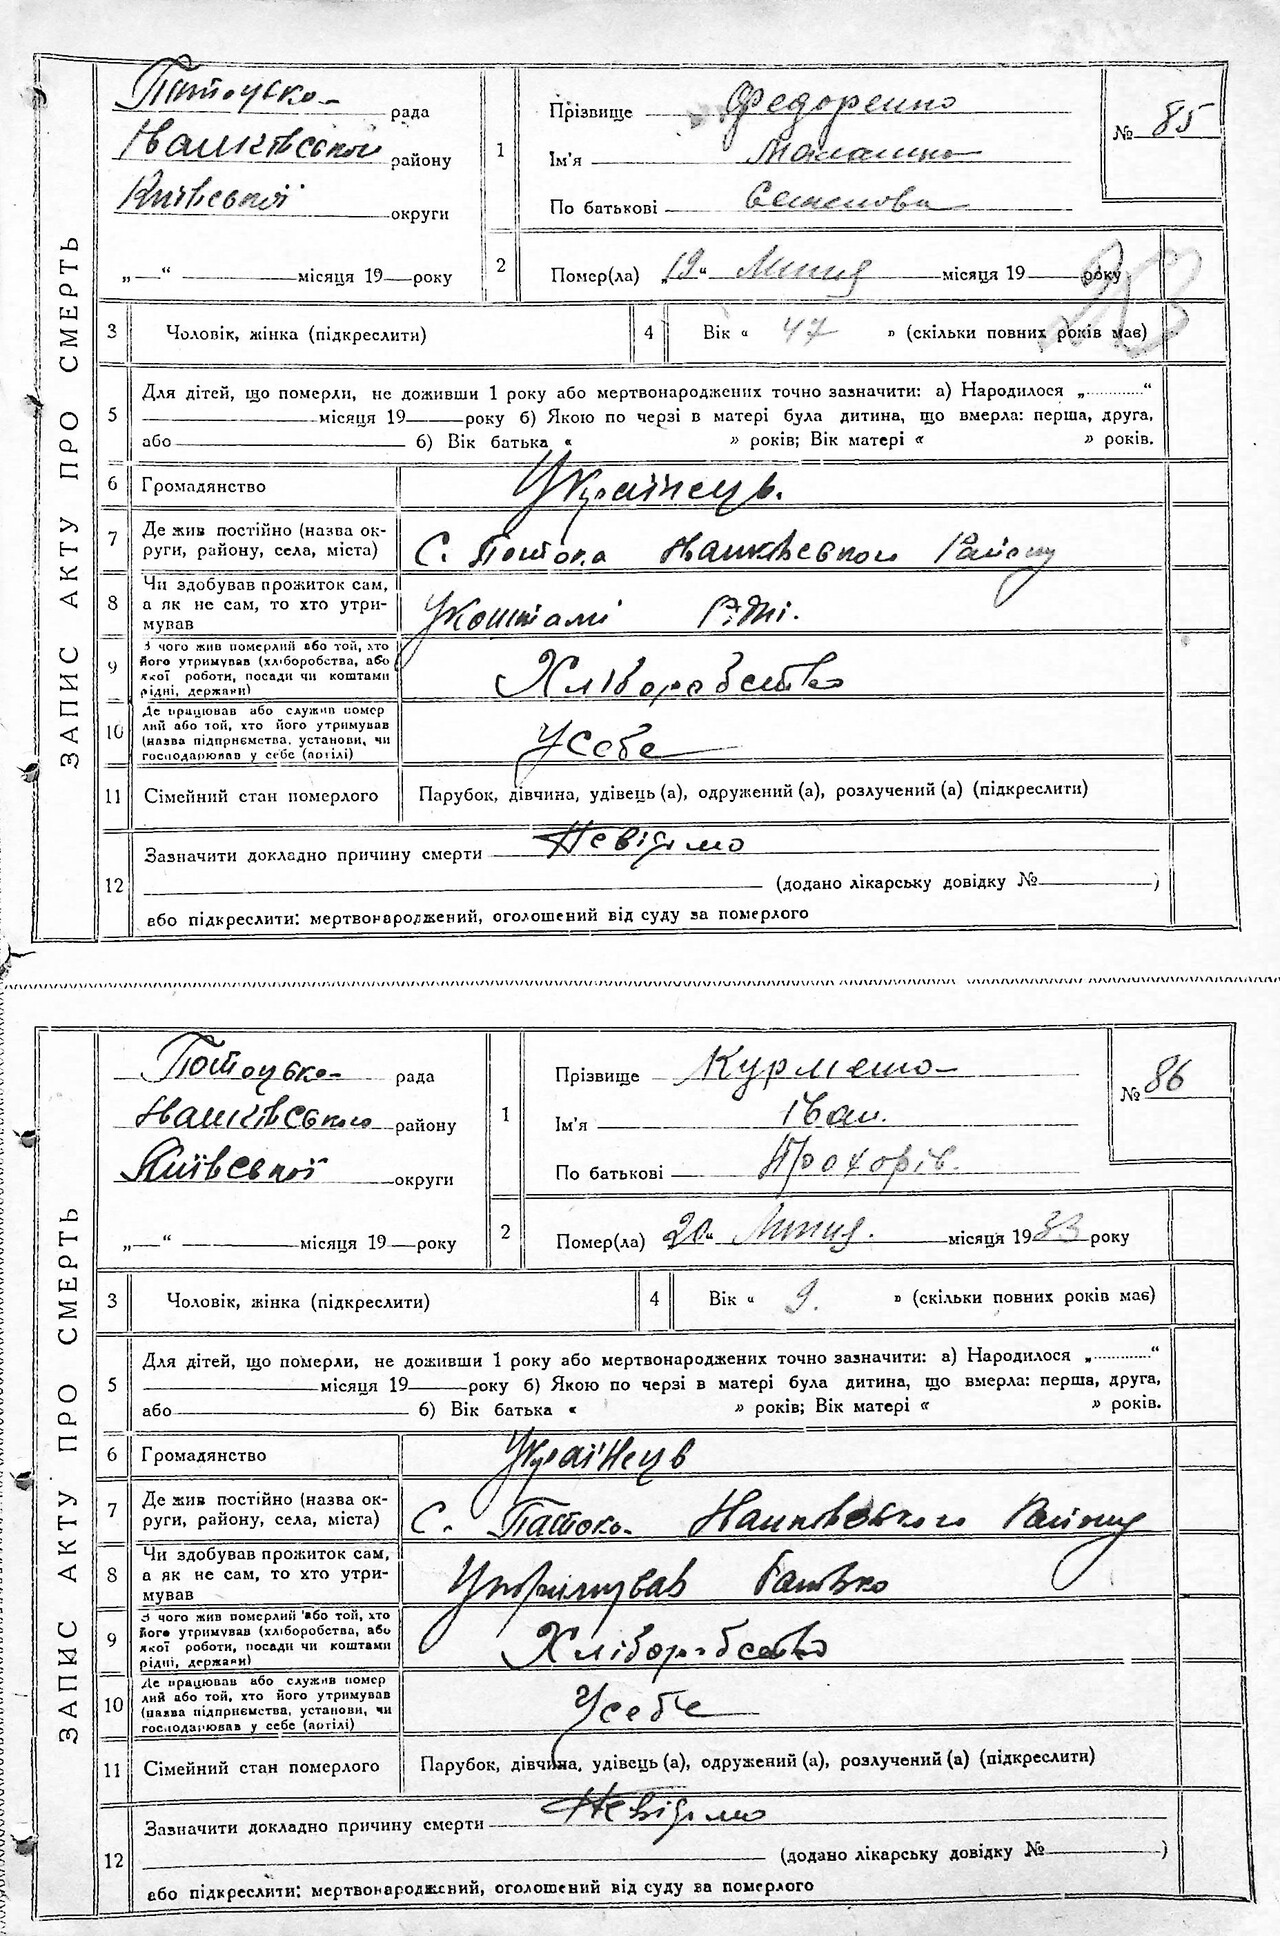 ЗАПИС АКТУ ПРО СМЕРТЬ
Потоцько- рада
Кашківської району
Київської округи
„—“ місяця 19 року
1
Прізвище Федоренко
Ім'я
По батькові
№ 85
2
Помер(ла) „19“ Липня місяця 19 року
33
3
Чоловік, жінка (підкреслити)
4
Вік « 47 » (скільки повних років має)
5
Для дітей, що померли, не доживши 1 року або мертвонароджених точно зазначити: а) Народилося „............“
місяця 19 року б) Якою по черзі в матері була дитина, що вмерла: перша, друга,
або б) Вік батька « » років; Вік матері « » років.
6
Громадянство
Українець.
7
Де жив постійно (назва ок-
руги, району, села, міста)
С. Потока Району
8
Чи здобував прожиток сам,
а як не сам, то хто утри-
мував
Укоштамі Рідні.
9
З чого жив померлий або той, хто
його утримував (хліборобства, або
якої роботи, посади чи коштами
рідні, держави)
Хліборобство
10
Де працював або служив помер
лий або той, хто його утримував
(назва підприємства, установи, чи
господарював у себе (артілі)
Усебе
11
Сімейний стан померлого
Парубок, дівчина, удівець (а), одружений (а), розлучений (а) (підкреслити)
12
Зазначити докладно причину смерти Невідомо
(додано лікарську довідку № )
або підкреслити: мертвонароджений, оголошений від суду за померлого
ЗАПИС АКТУ ПРО СМЕРТЬ
Потоцько- рада
району
Київської округи
„—“ місяця 19 року
1
Прізвище
Ім'я Іван.
По батькові Прохорів.
№ 86
2
Помер(ла) „20“ Липня. місяця 1933 року
3
Чоловік, жінка (підкреслити)
4
Вік « 9. » (скільки повних років має)
5
Для дітей, що померли, не доживши 1 року або мертвонароджених точно зазначити: а) Народилося „............“
місяця 19 року б) Якою по черзі в матері була дитина, що вмерла: перша, друга,
або б) Вік батька « » років; Вік матері « » років.
6
Громадянство
Українець
7
Де жив постійно (назва ок-
руги, району, села, міста)
С. Потока Району
8
Чи здобував прожиток сам,
а як не сам, то хто утри-
мував
Утримував батько
9
З чого жив померлий або той, хто
його утримував (хліборобства, або
якої роботи, посади чи коштами
рідні, держави)
Хліборобство
10
Де працював або служив помер
лий або той, хто його утримував
(назва підприємства, установи, чи
господарював у себе (артілі)
Усебе
11
Сімейний стан померлого
Парубок, дівчина, удівець (а), одружений (а), розлучений (а) (підкреслити)
12
Зазначити докладно причину смерти Невідомо
(додано лікарську довідку № )
або підкреслити: мертвонароджений, оголошений від суду за померлого